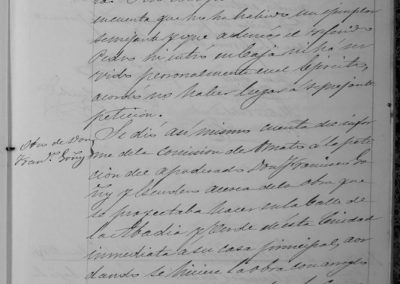 cuenta que no ha habido un ejemplar
semejante y que ademas el referido
Pedro ni entró en Caja ni ha ser
vido personalmente en el Ejercito,
acordó no haber lugar a semejante
peticion.
Obra de Don
Fran.co Goñy
Se dio asi mismo cuenta de infor
me de la Comision de Ornato a la peti
cion de apoderado Don Francisco Go
ñy y acerca de la obra que
se proyectaba hacer en la Calle de
la Abadia y de esta Ciudad
inmediata a su casa principal, acor
dando se hiciese la obra con arreglo